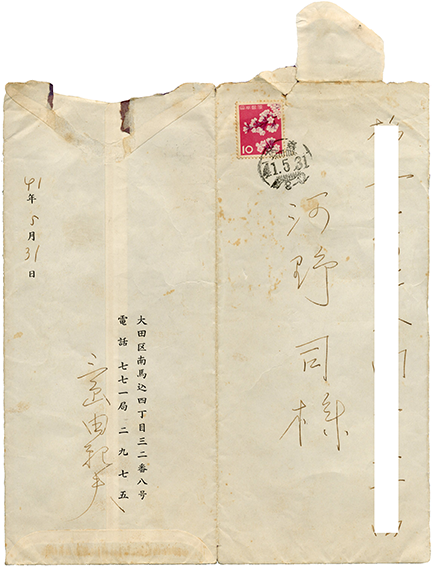 日本郵便
10
41.5.31
河野司様
41年5月31日
大田区南馬込四丁目三二番八号
電話 七七一局 二九七五
三島由紀夫